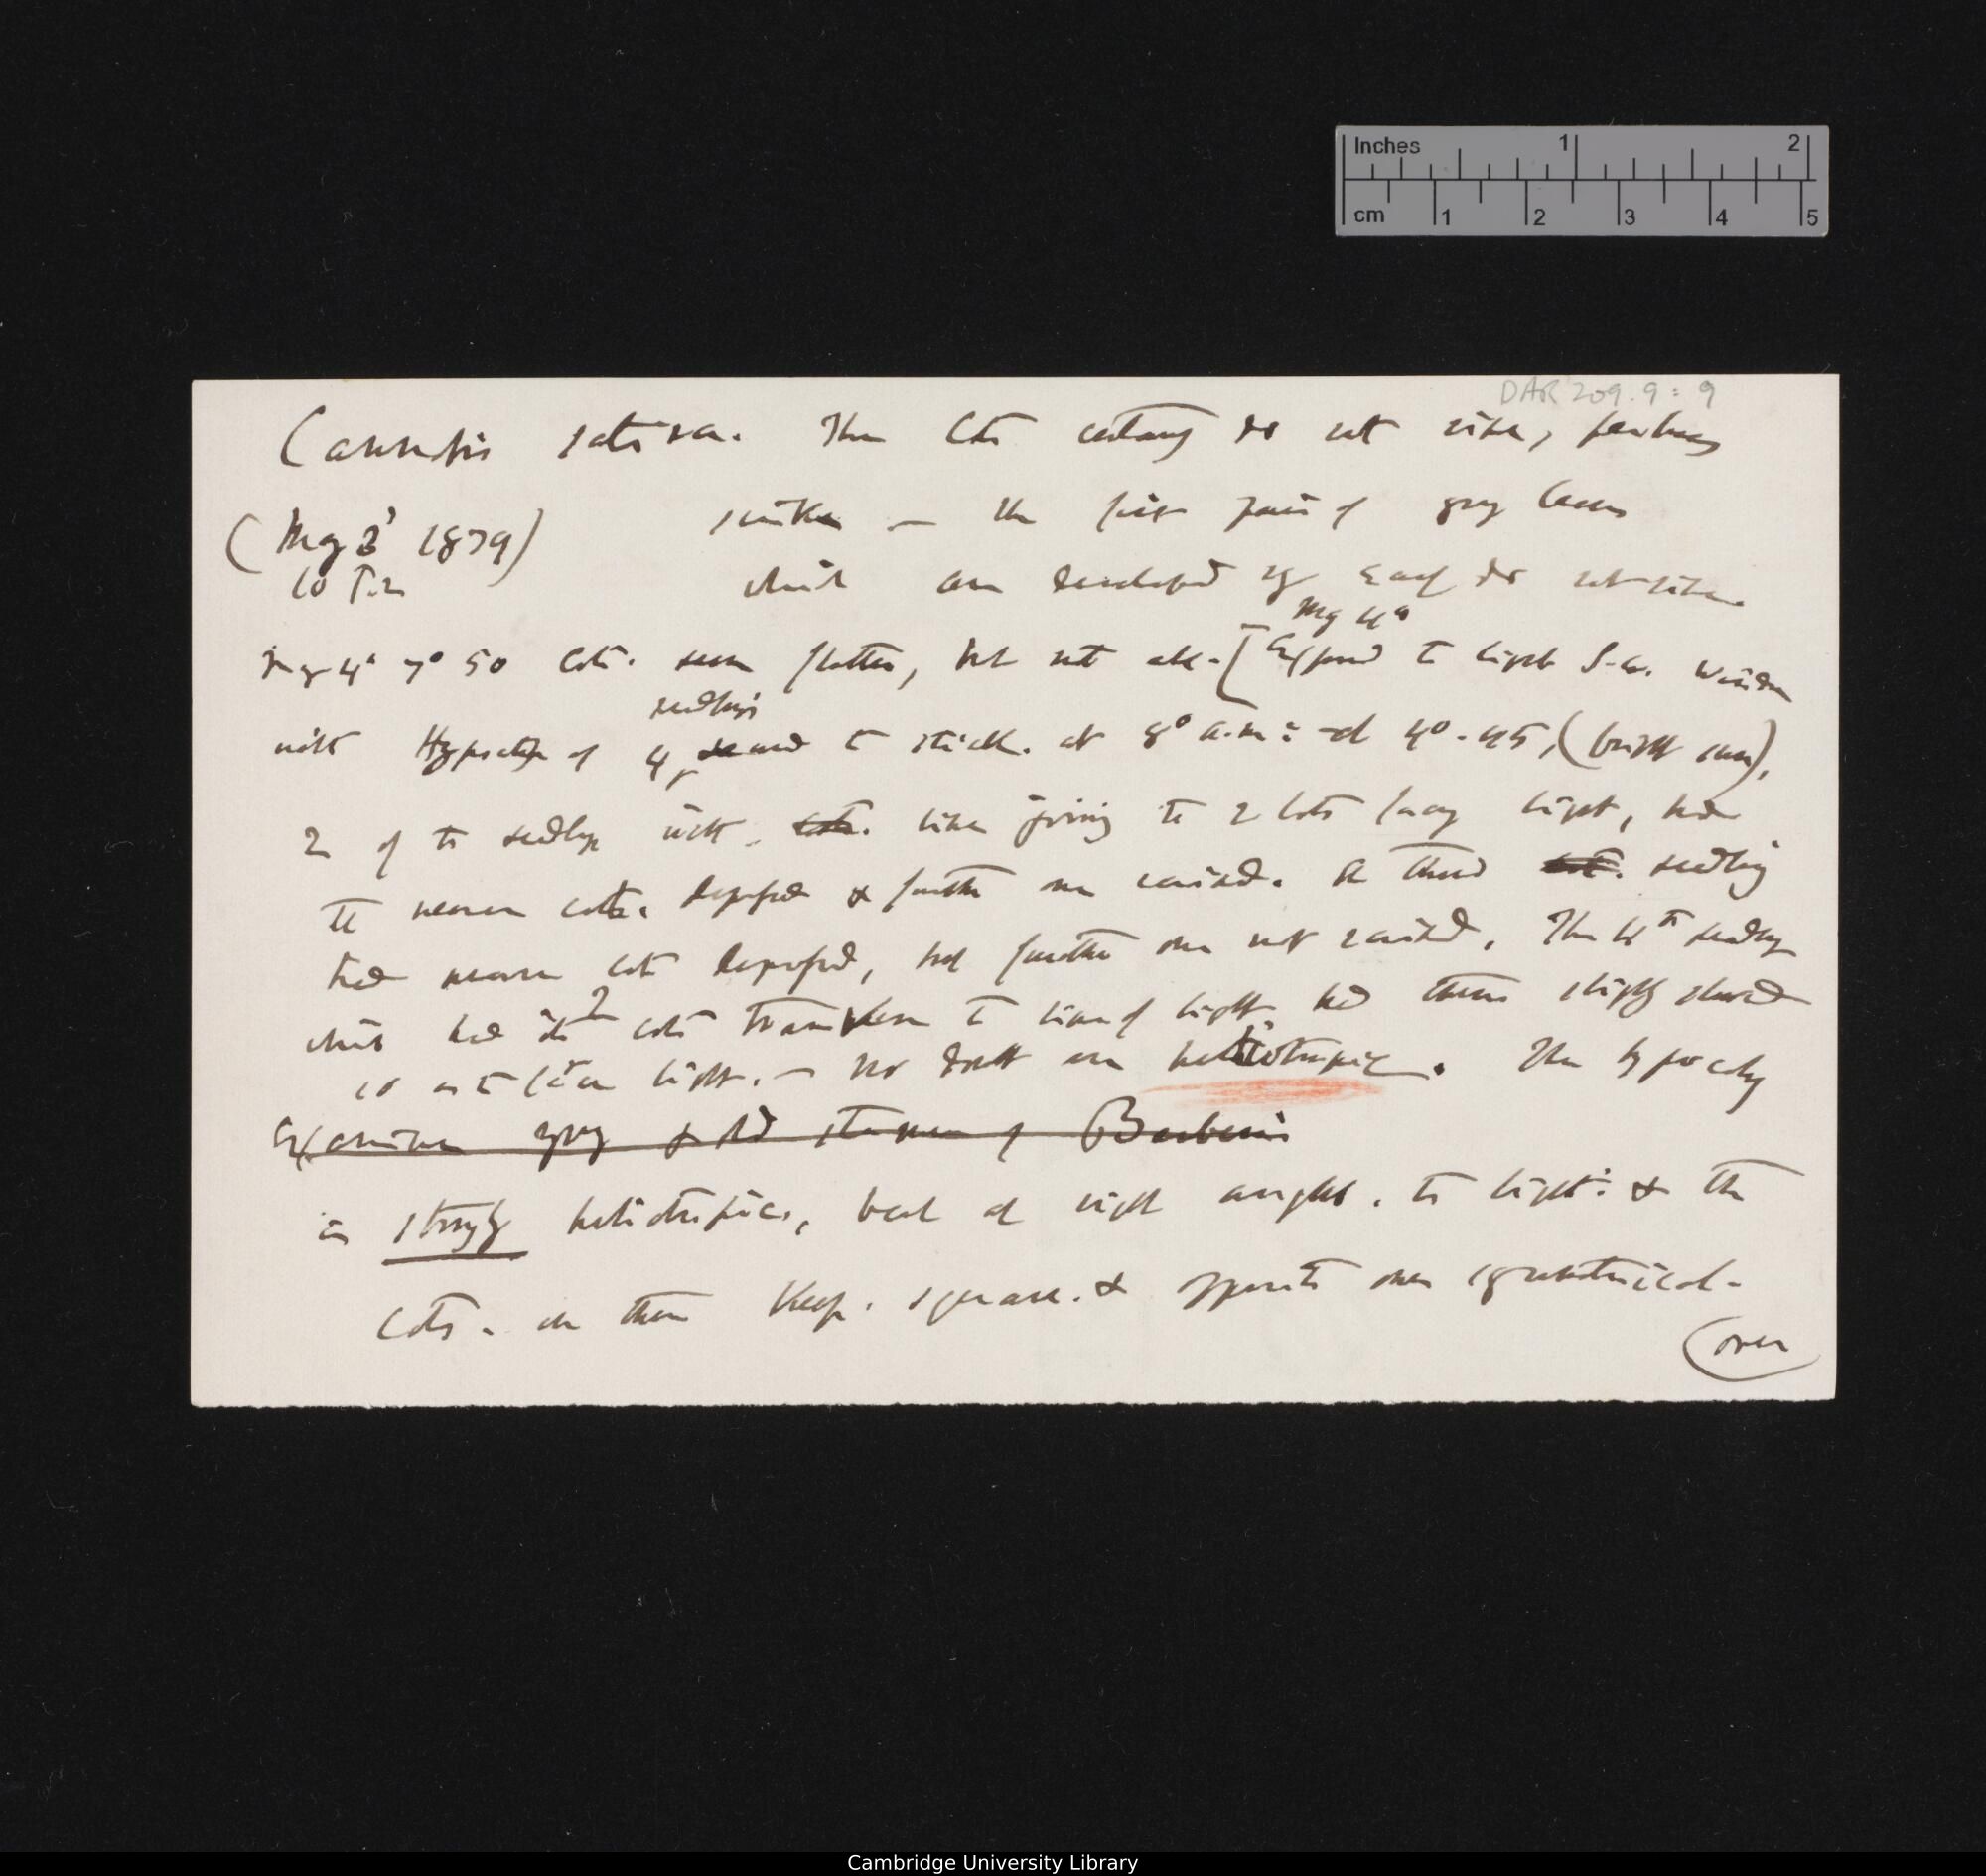 Inches 1 2
cm 1 2 3 4 5
DAR 209.9: 9
Cannabis sativa. The Cots certainly do not rise, perhaps
sink — the first pair of young leaves
(May 3d 1879)
10 P.m
which are developed very early do not rise
May 4th
May 4th 7° 50 Cots. seem flatter, but not [Exposed to light S.W. Window
seedlings
with Hypocotyls of 4 secured to stick. at 8° a.m: at 4°.45, (bright sun),
2 of the seedlings with cots. line joining the 2 cots facing light, had
the nearer cots. depressed & further one raised. A third cot. seedling
had nearer cot depressed, but further one not raised. The 4th seedling
which had its 2 cots transverse to line of light had them slightly slewed
so as to face light. — No doubt are heliotropic. The hypocotyl
Examine young & old stamens of Berberis
is strongly heliotropic, bent at right angles. to light: & the
Cots. on them keep. square. & opposite one symmetrical.
(over
Cambridge University Library